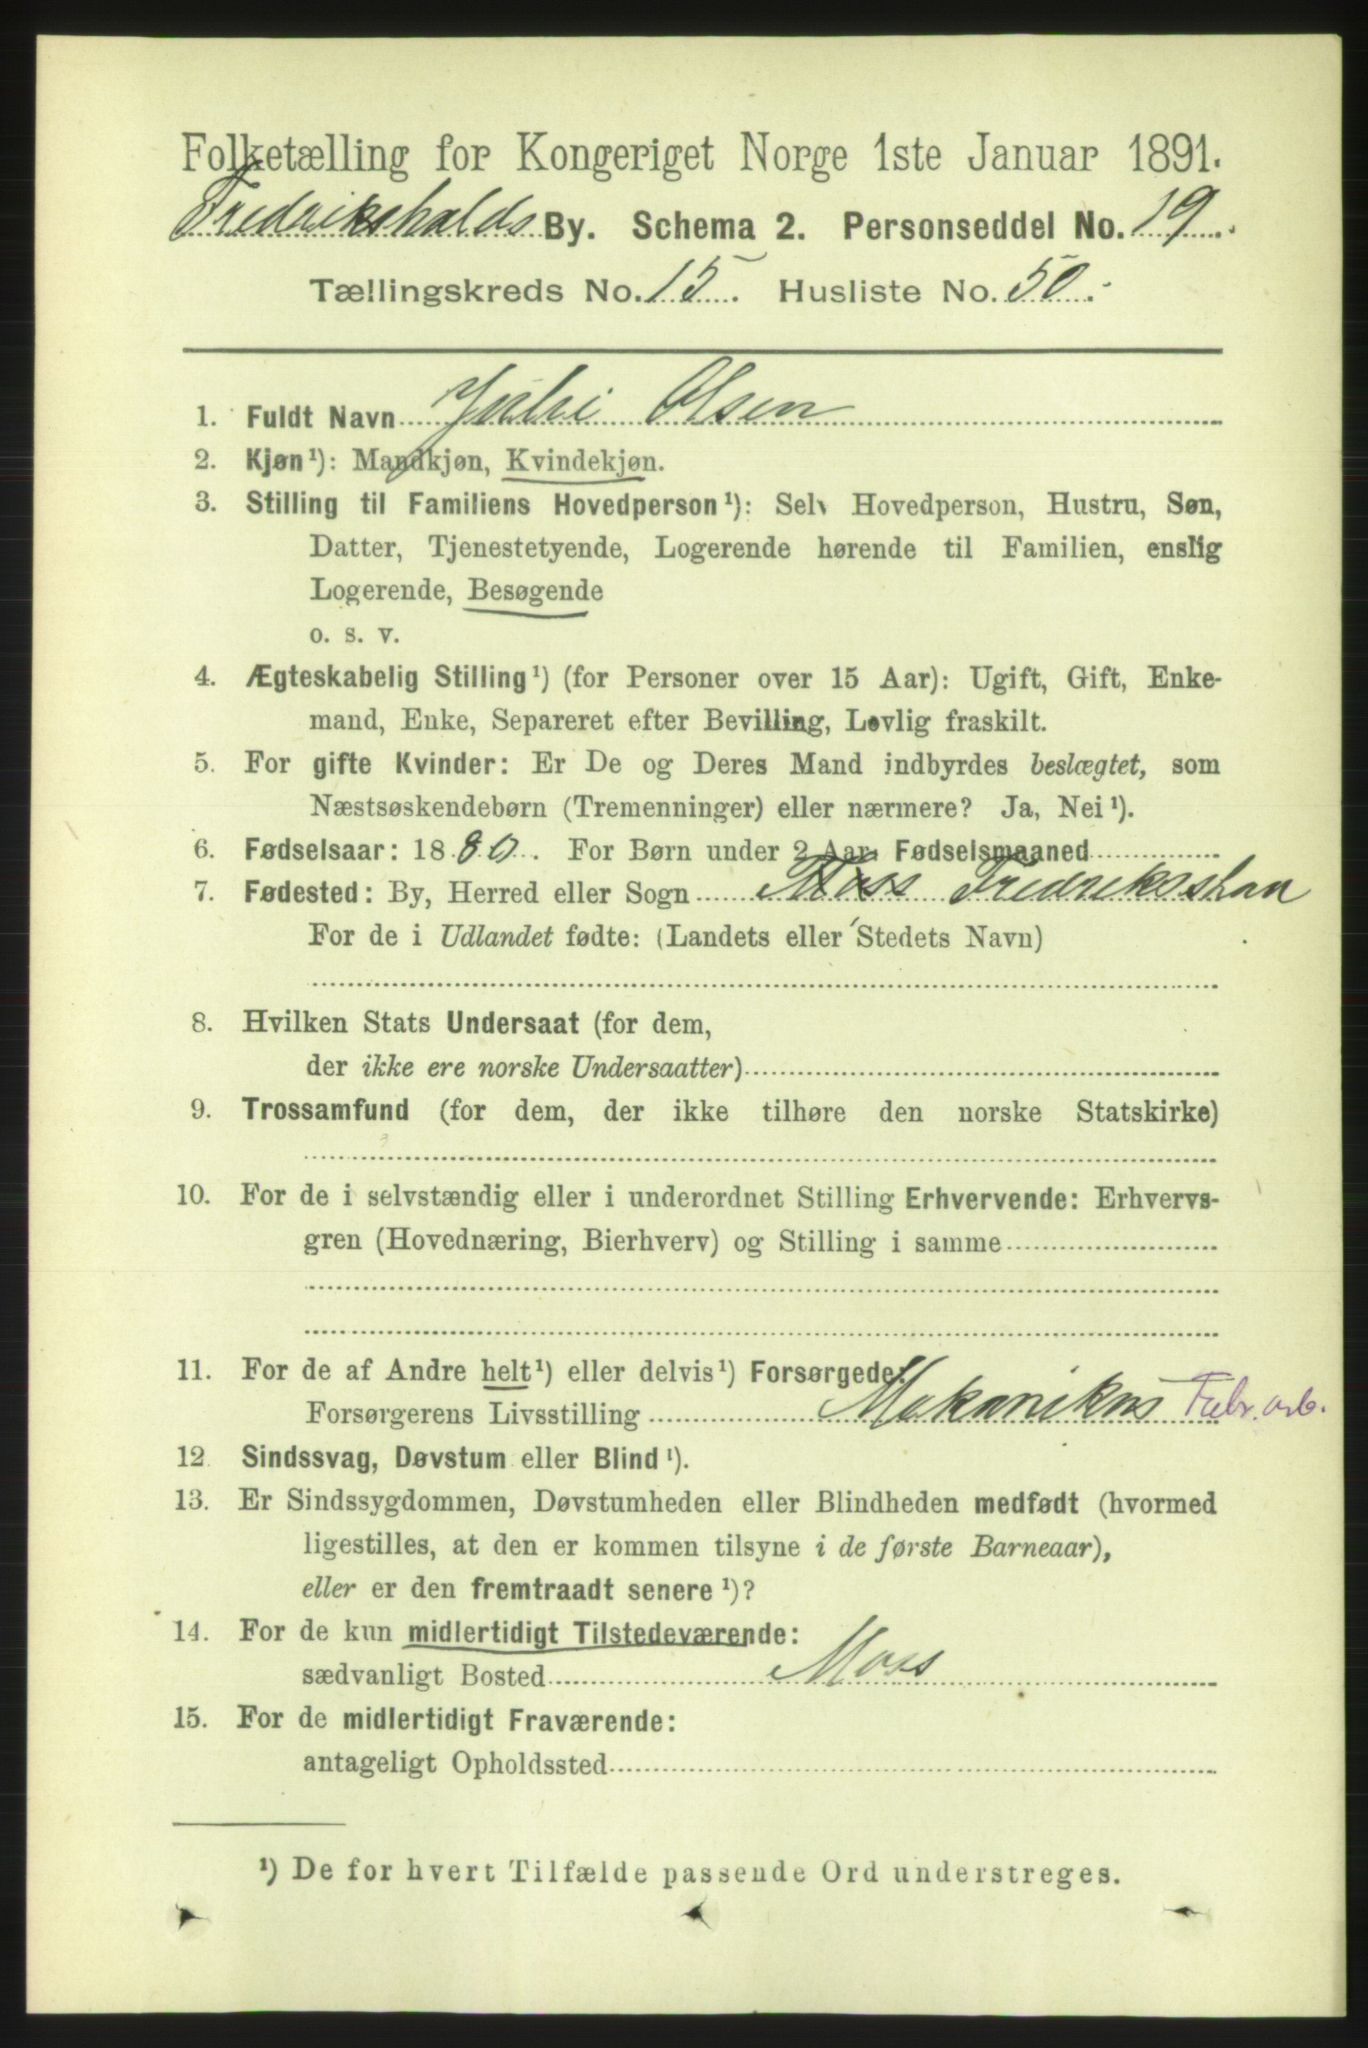 Folketælling for Kongeriget Norge 1ste Januar 1891.
Fredrikshalds By. Schema 2. Personseddel No. 19.
Tællingskreds No. 15. Husliste No. 50.
1. Fuldt Navn Julie Olsen
2. Kjøn¹): Mandkjøn, Kvindekjøn.
3. Stilling til Familiens Hovedperson¹): Selv Hovedperson, Hustru, Søn,
Datter, Tjenestetyende, Logerende hørende til Familien, enslig
Logerende, Besøgende
o. s. v.
4. Ægteskabelig Stilling¹) (for Personer over 15 Aar): Ugift, Gift, Enke-
mand, Enke, Separeret efter Bevilling, Lovlig fraskilt.
5. For gifte Kvinder: Er De og Deres Mand indbyrdes beslægtet, som
Næstsøskendebørn (Tremenninger) eller nærmere? Ja, Nei¹).
6. Fødselsaar: 1880. For Børn under 2 Aar: Fødselsmaaned
7. Fødested: By, Herred eller Sogn Moss Fredrikshan
For de i Udlandet fødte: (Landets eller Stedets Navn)
8. Hvilken Stats Undersaat (for dem,
der ikke ere norske Undersaatter)
9. Trossamfund (for dem, der ikke tilhøre den norske Statskirke)
10. For de i selvstændig eller i underordnet Stilling Erhvervende: Erhvervs-
gren (Hovednæring, Bierhverv) og Stilling i samme
11. For de af Andre helt¹) eller delvis¹) Forsørgede:
Forsørgerens Livsstilling Mekanikus Fabr. arb.
12 Sindssvag, Døvstum eller Blind¹).
13. Er Sindssygdommen, Døvstumheden eller Blindheden medfødt (hvormed
ligestilles, at den er kommen tilsyne i de første Barneaar),
eller er den fremtraadt senere¹)?
14. For de kun midlertidigt Tilstedeværende:
sædvanligt Bosted Moss
15. For de midlertidigt Fraværende:
antageligt Opholdssted
¹) De for hvert Tilfælde passende Ord understreges.